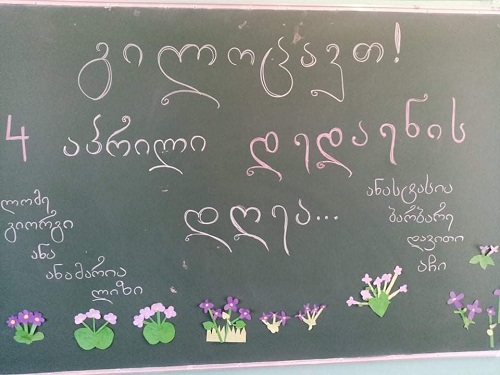 გილოცავთ!
4 აპრილი დედაენის
დღეა...
ლომე
გიორგი
ანა
ანამარია
ლიზი
ანასტასია
ბარბარე
დავითი
აჩი